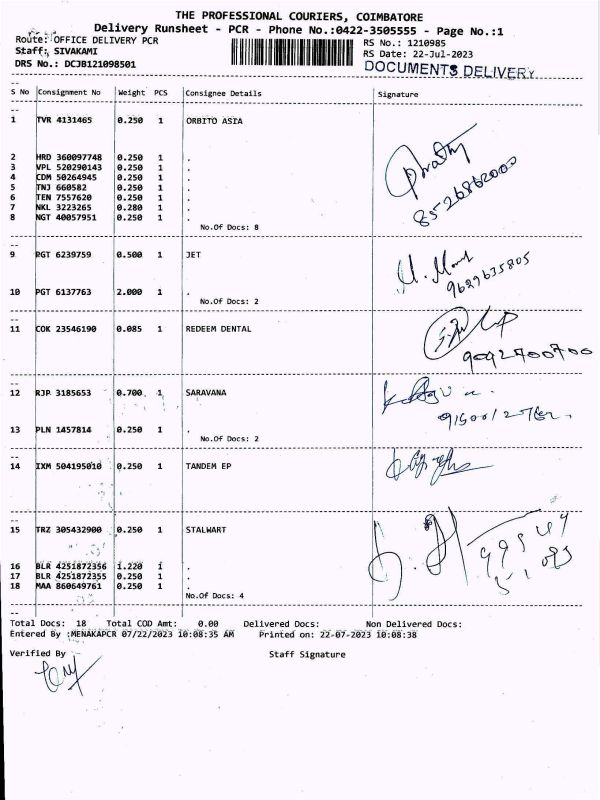 THE PROFESSIONAL COURIERS, COIMBATORE
Delivery Runsheet - PCR - Phone No.:0422-3505555 - Page No.:1
Route: OFFICE DELIVERY PCR
RS No.: 1210985
Staff: SIVAKAMI
RS Date: 22-Jul-2023
DRS No.: DCJB121098501
DOCUMENTS DELIVERY
S No Consignment No Weight PCS Consignee Details Signature
1 TVR 4131465 0.250 1 ORBITO ASIA
2 HRD 360097748 0.250 1 .
3 VPL 520290143 0.250 1 .
4 CDM 50264945 0.250 1 .
5 TNJ 660582 0.250 1 .
6 TEN 7557620 0.250 1 .
7 NKL 3223265 0.280 1 .
8 NGT 40057951 0.250 1 .
8526862000
No.Of Docs: 8
9 PGT 6239759 0.500 1 JET
9629635805
10 PGT 6137763 2.000 1 .
No.Of Docs: 2
11 COK 23546190 0.085 1 REDEEM DENTAL
9092700700
12 RJP 3185653 0.700 1 SARAVANA
13 PLN 1457814 0.250 1 .
No.Of Docs: 2
14 IXM 504195010 0.250 1 TANDEM EP
15 TRZ 305432900 0.250 1 STALWART
16 BLR 4251872356 1.220 1 .
17 BLR 4251872355 0.250 1 .
18 MAA 860649761 0.250 1 .
No.Of Docs: 4
Total Docs: 18 Total COD Amt: 0.00 Delivered Docs: Non Delivered Docs:
Entered By :MENAKAPCR 07/22/2023 10:08:35 AM Printed on: 22-07-2023 10:08:38
Verified By Staff Signature